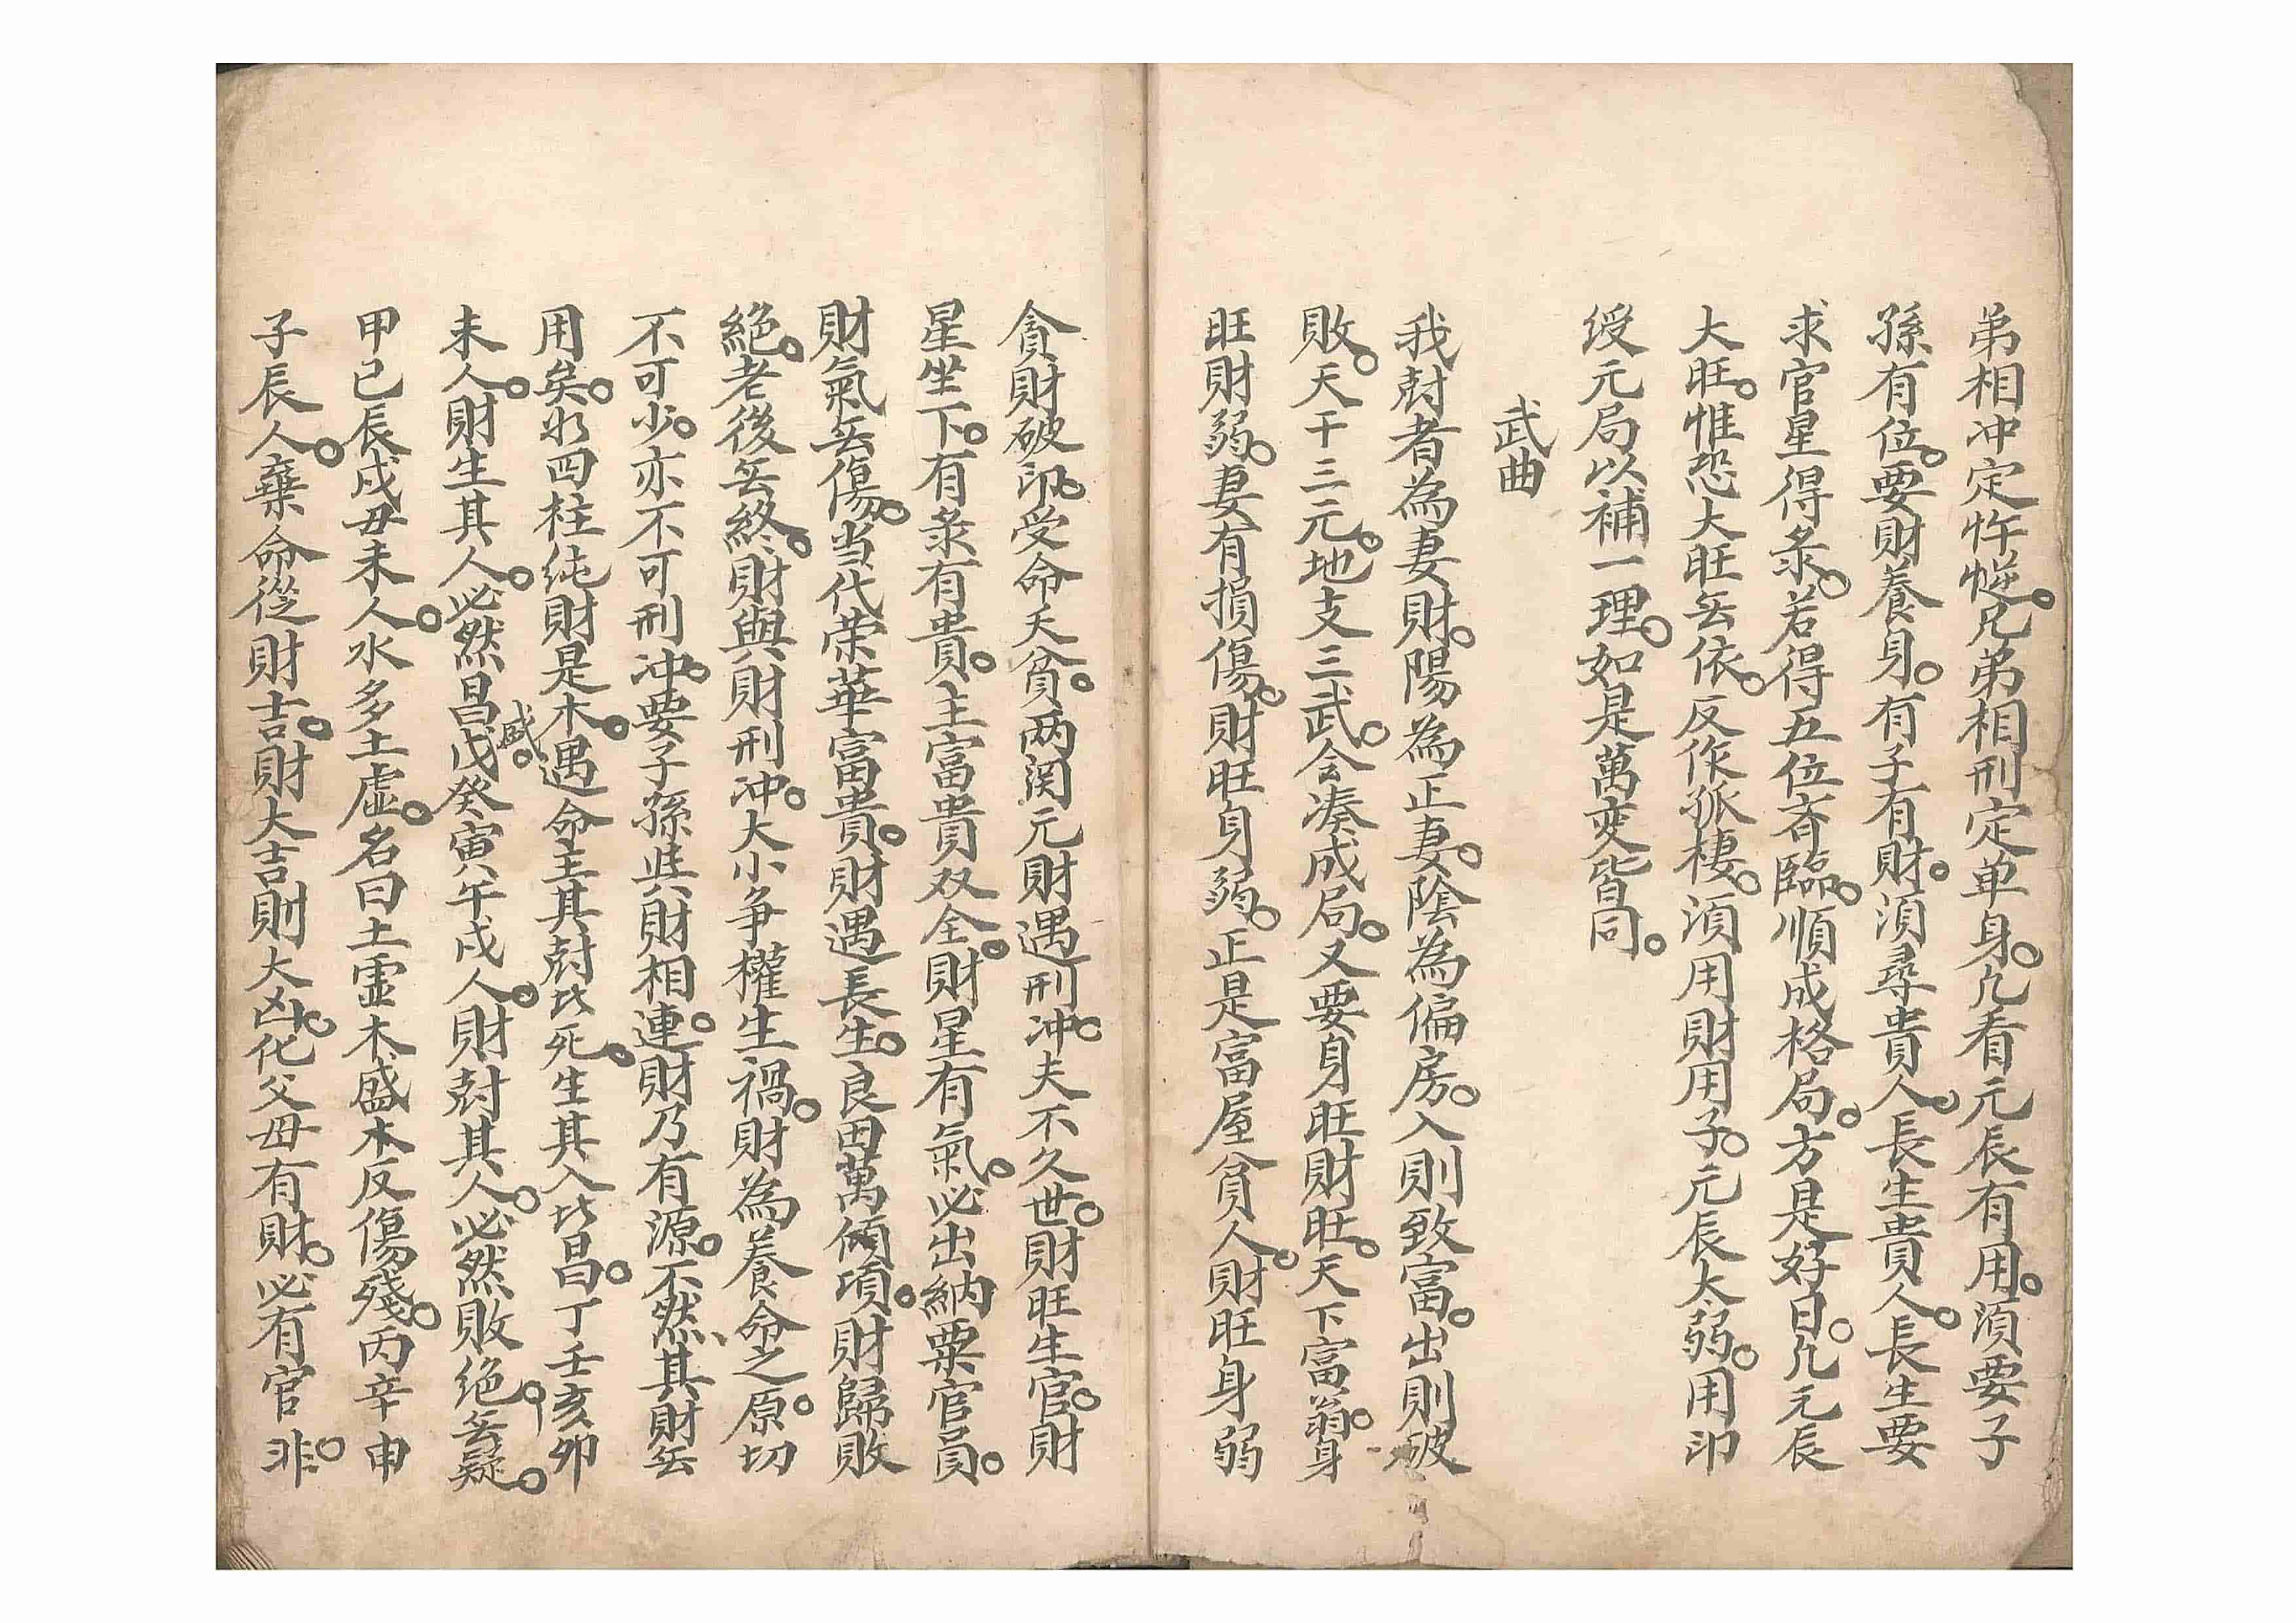 弟相冲定忤逆。兄弟相刑定单身。凢看元辰有用。湏要子
孫有位。要財養身。有子有財。湏尋貴人。長生貴人。長生要
求官星得彔。若得五位斉臨。順成格局。方是好日。凢元辰
大旺。惟恐大旺𠅤依。反作孤棲。湏用財用子。元辰太弱。用印
綬元局以補一理。如是萬变皆同。
武曲
我尅者為妻財。陽為正妻。陰為偏房。入則致富。出則破
敗。天干三元。地支三武。会凑成局。又要身旺財旺。天下富翁。身
旺財弱。妻有損傷。財旺身弱。正是富屋貧人。財旺身弱
貪財破印。受命夭貧。两関元財遇刑冲。夫不久世。財旺生官。財
星坐下。有彔有貴。主富貴双全。財星有氣。必出納粟官員。
財氣𠅤傷。当代荣華富貴。財遇長生。良田萬傾項。財歸敗
絕。老後𠅤終。財與財刑冲。大小争權生禍。財為養命之原。切
不可少。亦不可刑冲。要子孫與財相連。財乃有源。不然、其財𠅤
用矣。如四柱純財是木。遇命主其尅比死。生其入比昌。曰丁壬亥卯
未人。財生其人。必然昌盛。戊癸寅午戌人。財尅其人。必然敗绝𠅤疑。
甲己辰戌丑未人。水多土虛。名曰土虚木盛木反傷殘。丙辛申
子辰人。棄命從財吉。財大吉則大凶。化父母有財。必有官非。